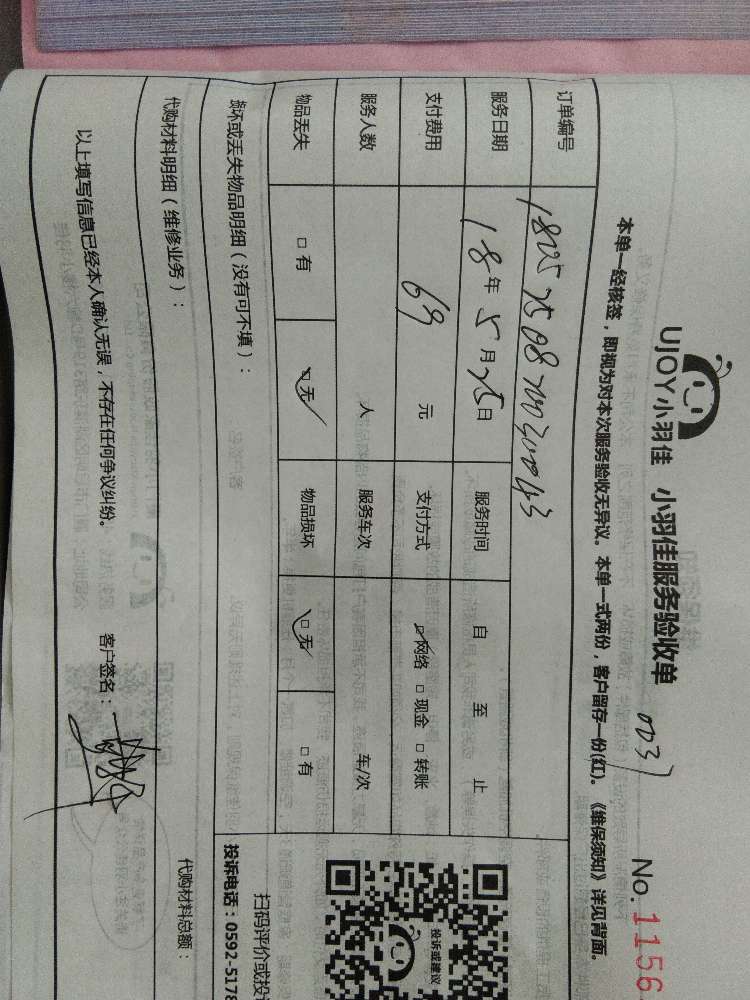 UJOY小羽佳 小羽佳服务验收单 0037 No.1156
本单一经核签，即视为对本次服务验收无异议。本单一式两份，客户留存一份(红)。《维保须知》详见背面。
订单编号
服务日期 18年5月25日 服务时间 自 至 止
支付费用 69 元 支付方式 □网络 □现金 □转账
服务人数 人 服务车次 车/次
物品丢失 □有 □无 物品损坏 □无 □有
损坏或丢失物品明细（没有可不填）：
投诉或建议
扫码评价或投
投诉电话：0592-5178
代购材料明细（维修业务）： 代购材料总额：
以上填写信息已经本人确认无误，不存在任何争议纠纷。 客户签名：